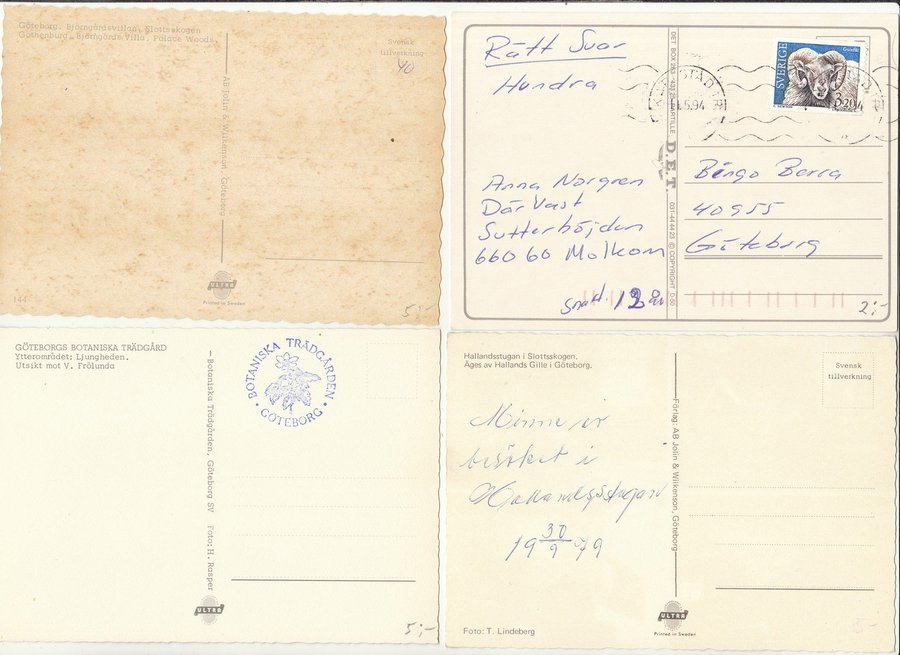 Göteborg. Björngårdsvillan, Slottsskogen
Gothenburg. Björngårds Villa. Palace Woods.
Svensk
tillverkning
40
AB Jolin & Wilkenson, Göteborg
ULTRA
Printed in Sweden
144
5:-
Rätt Svar
Hundra
SVERIGE
3.20
5.94
Anna Norgren
Där Väst
Sutterhöjden
660 60 Molkom
snart 12 år
D.E.T.
031-44 44 23 © COPYRIGHT
Bingo Berra
40955
Göteborg
2:-
GÖTEBORGS BOTANISKA TRÄDGÅRD
Ytterområdet: Ljungheden.
Utsikt mot V. Frölunda
BOTANISKA TRÄDGÅRDEN
• GÖTEBORG •
Botaniska Trädgården, Göteborg SV Foto: H. Rasper
ULTRA
5:-
Hallandsstugan i Slottsskogen.
Ägs av Hallands Gille i Göteborg.
Svensk
tillverkning
Minne av
besöket i
Hallandsstugan
19 30/9 79
Förlag: AB Jolin & Wilkenson, Göteborg
ULTRA
Printed in Sweden
Foto: T. Lindeberg
5:-